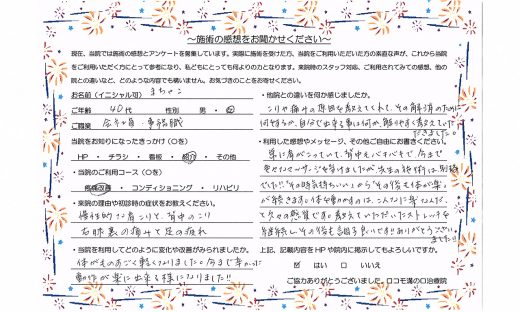 ～施術の感想をお聞かせください～
現在、当院では施術の感想とアンケートを募集しています。実際に施術を受けた方、当院をご利用いただいた方の素直な声が、これから当院
をご利用いただく方にとって参考になり、私どもにとっても何よりの力となります。来院時のスタッフ対応、ご利用されてみての感想、他の
院との違いなど、どのような内容でも構いません。お気づきのことをお寄せください。
お名前（イニシャル可）
ご年齢 40代 性別 男・女
ご職業 会社員・事務職
当院をお知りになったきっかけ（○を）
HP ・ チラシ ・ 看板 ・ 紹介 ・ その他
・当院のご利用コース（○を）
疼痛改善 ・ コンディショニング ・ リハビリ
・来院の理由や初診時の症状をお教えください。
慢性的な肩こりと、背中のこり
右膝裏の痛みと足の疲れ
・当院を利用してどのように変化や改善がみられましたか。
体がものすごく軽くなりました。今まで辛かった
動作が楽に出来る様になりました!!
・他院との違いを何か感じましたか。
こりや痛みの原因を教えてくれて、その解消のために
何をするか、自分で出来る事は何か、解りやすく教えていた
だきました。
・利用した感想やメッセージ、その他ご自由にお書きください。
常に肩がこっていて、背中もバキバキで、今まで
色々なマッサージを受けましたが、先生の施術は、別格
でした!!"その時気持ちいい"から"その後も体が楽"
が続きます。体を動かすのは、こんなに楽なんだ、
と久々の感覚です。教えていただいたストレッチを
上記、記載内容をHPや院内に掲示してもよろしいですか。
☑ はい □ いいえ
ご協力ありがとうございました。ロコモ溝の口治療院